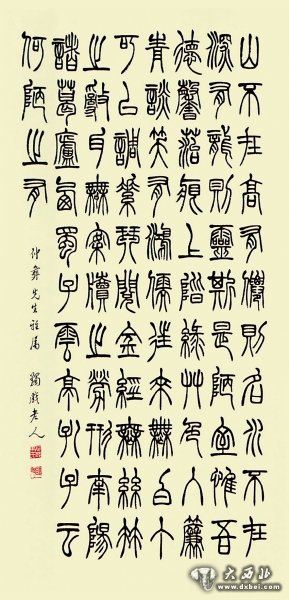 山不在高有僊則名水不在
深有龍則靈斯是陋室惟吾
德馨菭痕上階綠艸色入簾
青談笑有鴻儒往來無白丁
可以調素琴閱金經無絲竹
之亂耳無案牘之勞形南陽
諸葛廬西蜀子雲亭孔子云
何陋之有
仲彝先生雅属 蠲戲老人
大西北
www.dxbei.com